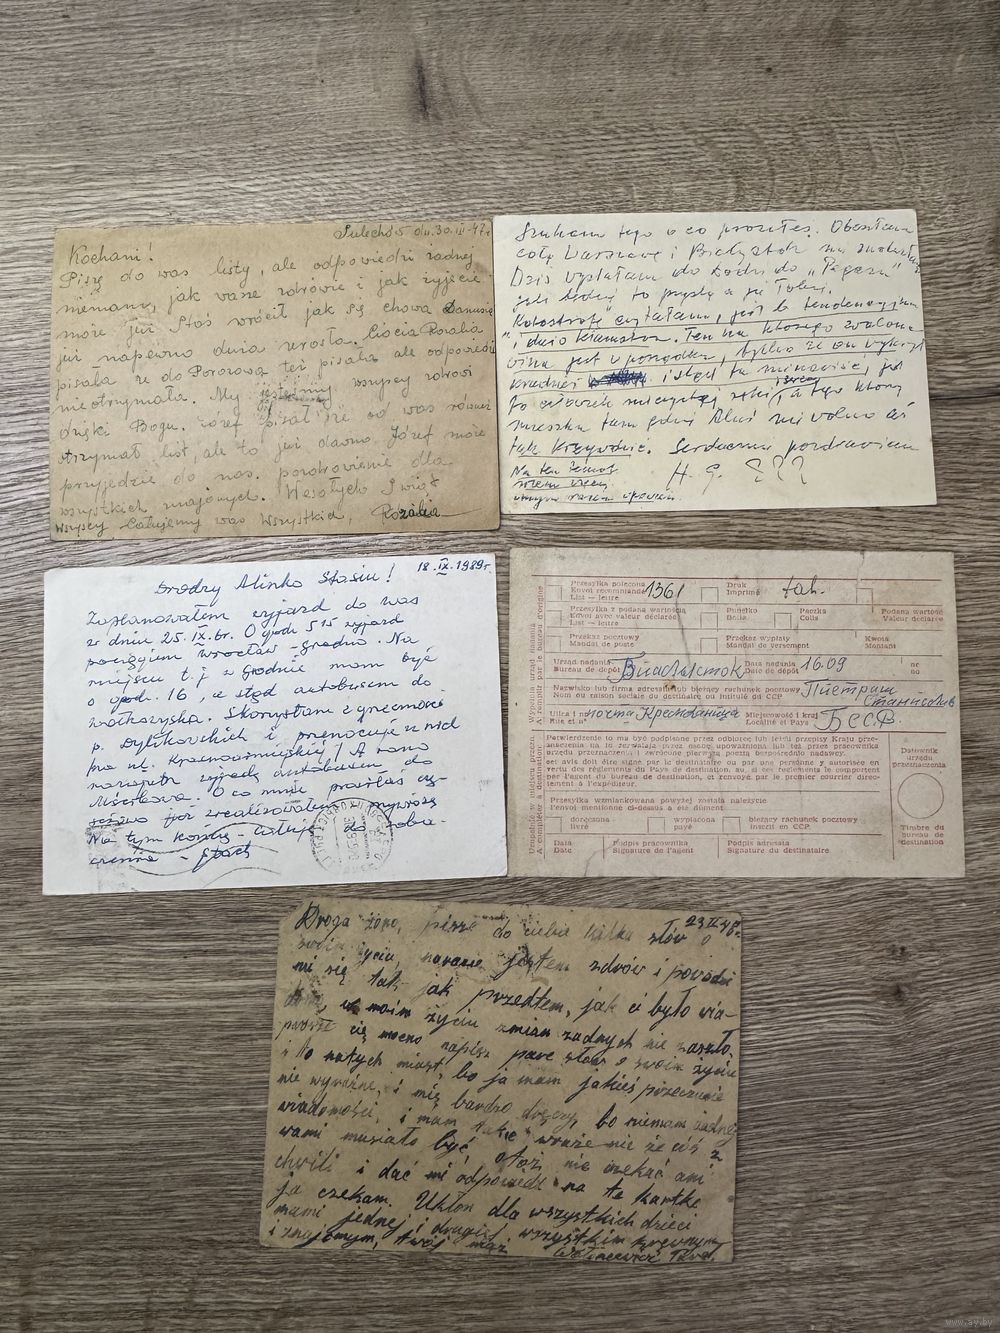 Sulechów dn. 30.III-47r
Kochani!
Piszę do was listy, ale odpowiedzi żadnej
niemamy, jak wasze zdrowie i jak żyjecie
może już Staś wrócił jak się chowa Danusia
już napewno duża urosła. Ciocia Rozalia
pisała że do Porozowa też pisała ale odpowiedzi
nieotrzymała. My jesteśmy wszyscy zdrowi
dzięki Bogu. Józef pisał że od was również
otrzymał list, ale to już dawno. Józef może
przyjedzie do nas. pozdrowienie dla
wszystkich znajomych. Wesołych Świąt
wszyscy Całujemy was Wszystkich, Rozalia
Szukam tego o co prosiłeś. Obeszłam
całą Warszawę i Białystok nie znalazłam
Dziś wysłałam do Łodzi do "Pegazu"
jeśli będzie to przyślą a ja Tobie.
"Katastrofę" czytałam, jest b. tendencyjna
i dużo kłamstw. Ten na którego zwalono
wina jest w porządku, tylko że on wykrył
kradzież i stąd ta nienawiść, jest
to człowiek niezwykłej rzeczy, a tego który
mieszka tam gdzie Aluś nie wolno aż
tak krzywdzić. Serdecznie pozdrawiam
Na ten temat H. G.
18.IX.1989r.
Drodzy Alinko Stasiu!
Zaplanowałem wyjazd do was
w dniu 25.IX.br. O godz 5 15 wyjazd
pociągiem Wrocław - Grodno. Na
miejscu t.j. w Grodnie mam być
o godz. 16, a stąd autobusem do
Wołkowyska. Skorzystam z grzeczności
p. Dylikowskich i przenocuję u nich
na ul. Krasnoarmiejskiej. A rano
następny wyjazd autobusem do
Mścibowa. O co mnie prosiłaś czę-
ściowo już zrealizowałem i przywiozę
Na tym kończę - całuję do zoba-
czenia - Stach
Przesyłka polecona
Envoi recommandé
List — lettre
1361
Druk
Imprimé
tak.
Przesyłka z podaną wartością
Envoi avec valeur déclarée
List — lettre
Pudełko
Boîte
Paczka
Colis
Podana wartość
Valeur déclarée
Przekaz pocztowy
Mandat de poste
Przekaz wypłaty
Mandat de versement
Kwota
Montant
Urząd nadania
Bureau de dépôt
Биалысток
Data nadania
Date de dépôt
16.09
nr
no
Nazwisko lub firma adresata lub bieżący rachunek pocztowy
Nom ou raison sociale du destinataire ou intitulé du CCP
Пиетраш
Станислав
Ulica i nr
Rue et n°
почта Крестовница
Miejscowość i kraj
Localité et Pays
БССР.
Potwierdzenie to ma być podpisane przez odbiorcę lub jeśli przepisy Kraju prze-
znaczenia na to zezwalają przez osobę upoważnioną lub też przez pracownika
urzędu przeznaczenia i zwrócone pierwszą pocztą bezpośrednio nadawcy.
Cet avis doit être signé par le destinataire ou par une personne y autorisée en
vertu des règlements du Pays de destination, ou, si ces règlements le comportent
par l'agent du bureau de destination, et renvoyé par le premier courrier direc-
tement à l'expéditeur.
Datownik
urzędu
przeznaczenia
Przesyłka wzmiankowana powyżej została należycie
l'envoi mentionné ci-dessus a été dûment
doręczona
livré
wypłacona
payé
bieżący rachunek pocztowy
inscrit en CCP.
Timbre du
bureau de
destination
Data
Date
Podpis pracownika
Signature de l'agent
Podpis adresata
Signature du destinataire
23 II 46r.
Droga żono, piszę do ciebie kilka słów o
swoim życiu, narazie jestem zdrów i powodzi
mi się tak jak przedtem, jak ci było wia-
dome, w moim życiu zmian żadnych nie zaszło,
proszę cię mocno napisz parę słów o swoim życiu
i to natych miast, bo ja mam jakieś przeczucie
nie wyraźne, i mię bardzo dręczy, bo niemam żadnej
wiadomości, i mam takie wraże nie że coś z
wami musiało być, otóż nie czekać ani
chwili i dać mi odpowiedź na tę kartkę
ja czekam. Ukłon dla wszystkich dzieci
mamy jednej i drugiej wszystkim krewnym
i znajomym, twój mąż
www.ay.by